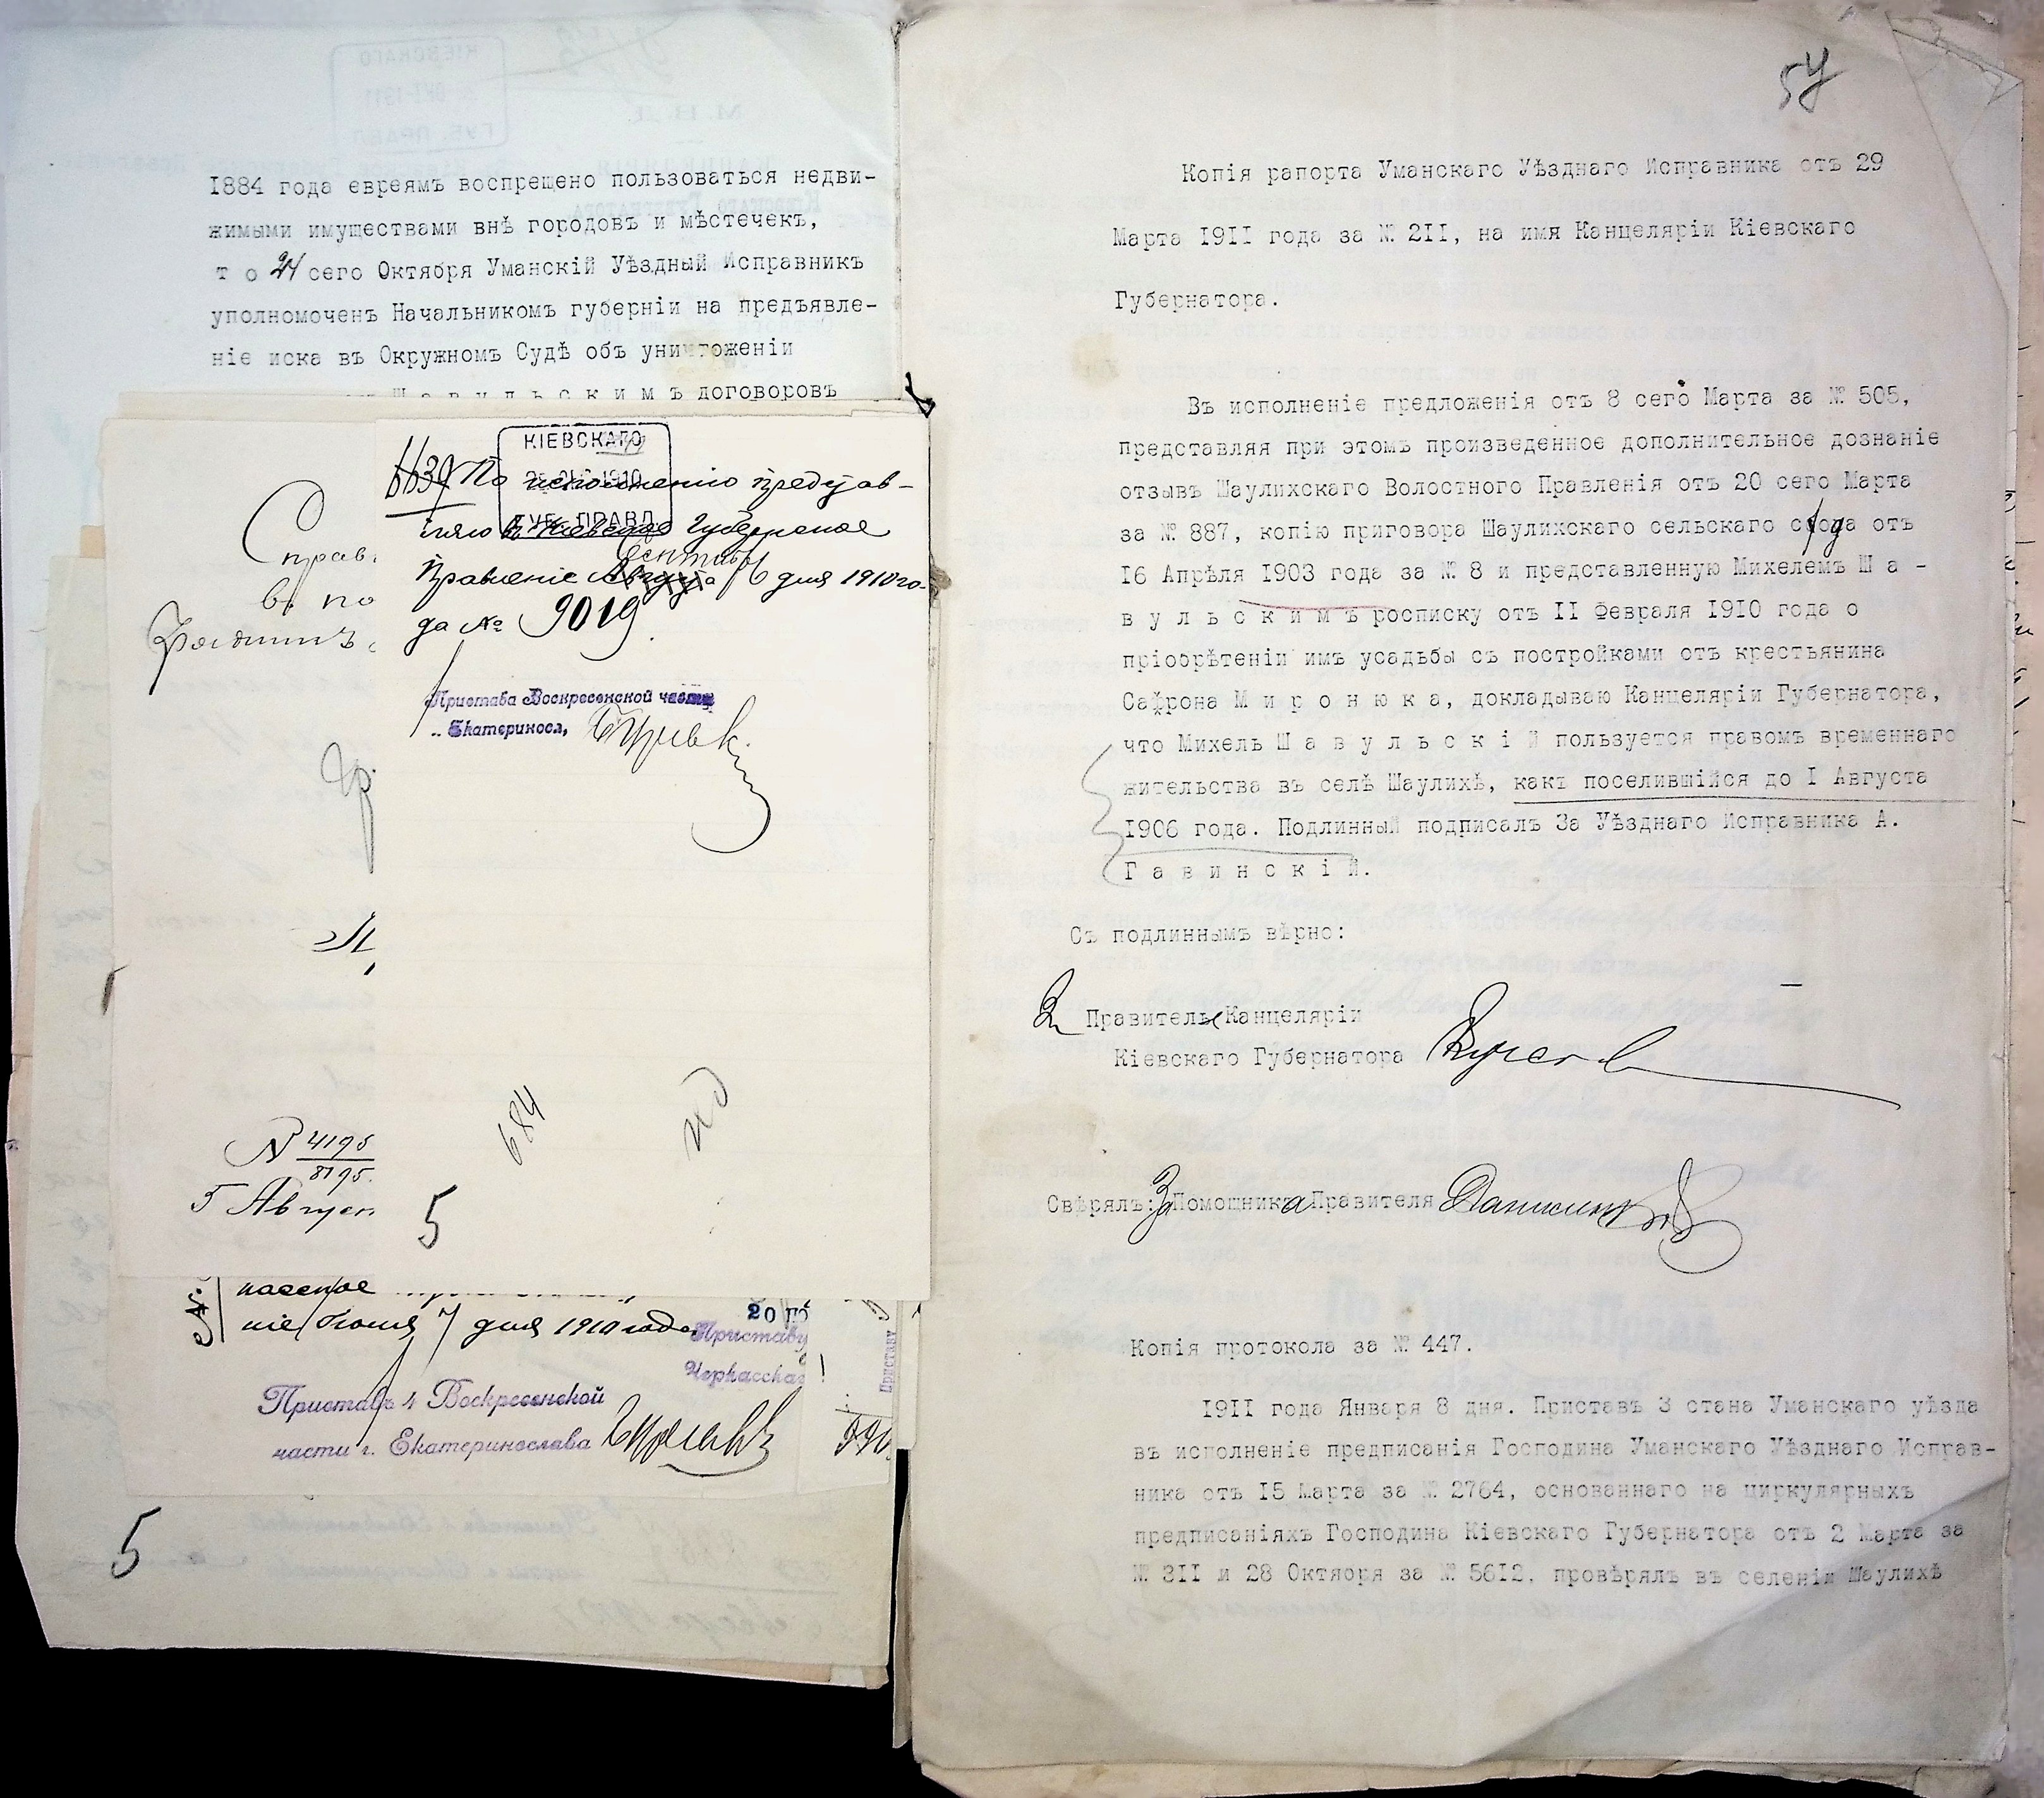 1884 года евреямъ воспрещено пользоваться недви-
жимыми имуществами внѣ городовъ и мѣстечекъ,
т о 24 сего Октября Уманскій Уѣздный Исправникъ
уполномоченъ Начальникомъ губерніи на предъявле-
ніе иска въ Окружномъ Судѣ объ уничтоженіи
Ш а в у л ь с к и м ъ договоровъ
КІЕВСКАГО
1910
ГУБ. ПРАВЛ
По исполненію представ-
ляю въ Кіевское Губернское
Правленіе Августа Сентября 6 дня 1910 го-
да № 9019.
Пристава Воскресенской части
Екатеринос,
Справ
въ по
№ 4195
8195.
5 Август
684
5
ніе Июня 7 дня 1910 года
20
Приставу
Черкасска
Приставу
Приставъ 1 Воскресенской
части г. Екатеринослава
5
57
Копія рапорта Уманскаго Уѣзднаго Исправника отъ 29
Марта 1911 года за № 211, на имя Канцеляріи Кіевскаго
Губернатора.
Въ исполненіе предложенія отъ 8 сего Марта за № 505,
представляя при этомъ произведенное дополнительное дознаніе
отзывъ Шаулихскаго Волостного Правленія отъ 20 сего Марта
за № 887, копію приговора Шаулихскаго сельскаго схода отъ
16 Апрѣля 1903 года за № 8 и представленную Михелемъ Ш а -
в у л ь с к и м ъ росписку отъ 11 Февраля 1910 года о
пріобрѣтеніи имъ усадьбы съ постройками отъ крестьянина
Сафрона М и р о н ю к а, докладываю Канцеляріи Губернатора,
что Михель Ш а в у л ь с к і й пользуется правомъ временнаго
жительства въ селѣ Шаулихѣ, какъ поселившійся до 1 Августа
1906 года. Подлинный подписалъ За Уѣзднаго Исправника А.
Г а в и н с к і й.
Съ подлиннымъ вѣрно:
За Правителя Канцеляріи
Кіевскаго Губернатора
Свѣрялъ: За Помощника Правителя
Копія протокола за № 447.
1911 года Января 8 дня. Приставъ 3 стана Уманскаго уѣзда
въ исполненіе предписанія Господина Уманскаго Уѣзднаго Исправ-
ника отъ 15 Марта за № 2764, основаннаго на циркулярныхъ
предписаніяхъ Господина Кіевскаго Губернатора отъ 2 Марта за
№ 311 и 28 Октября за № 5612, провѣрялъ въ селеніи Шаулихѣ